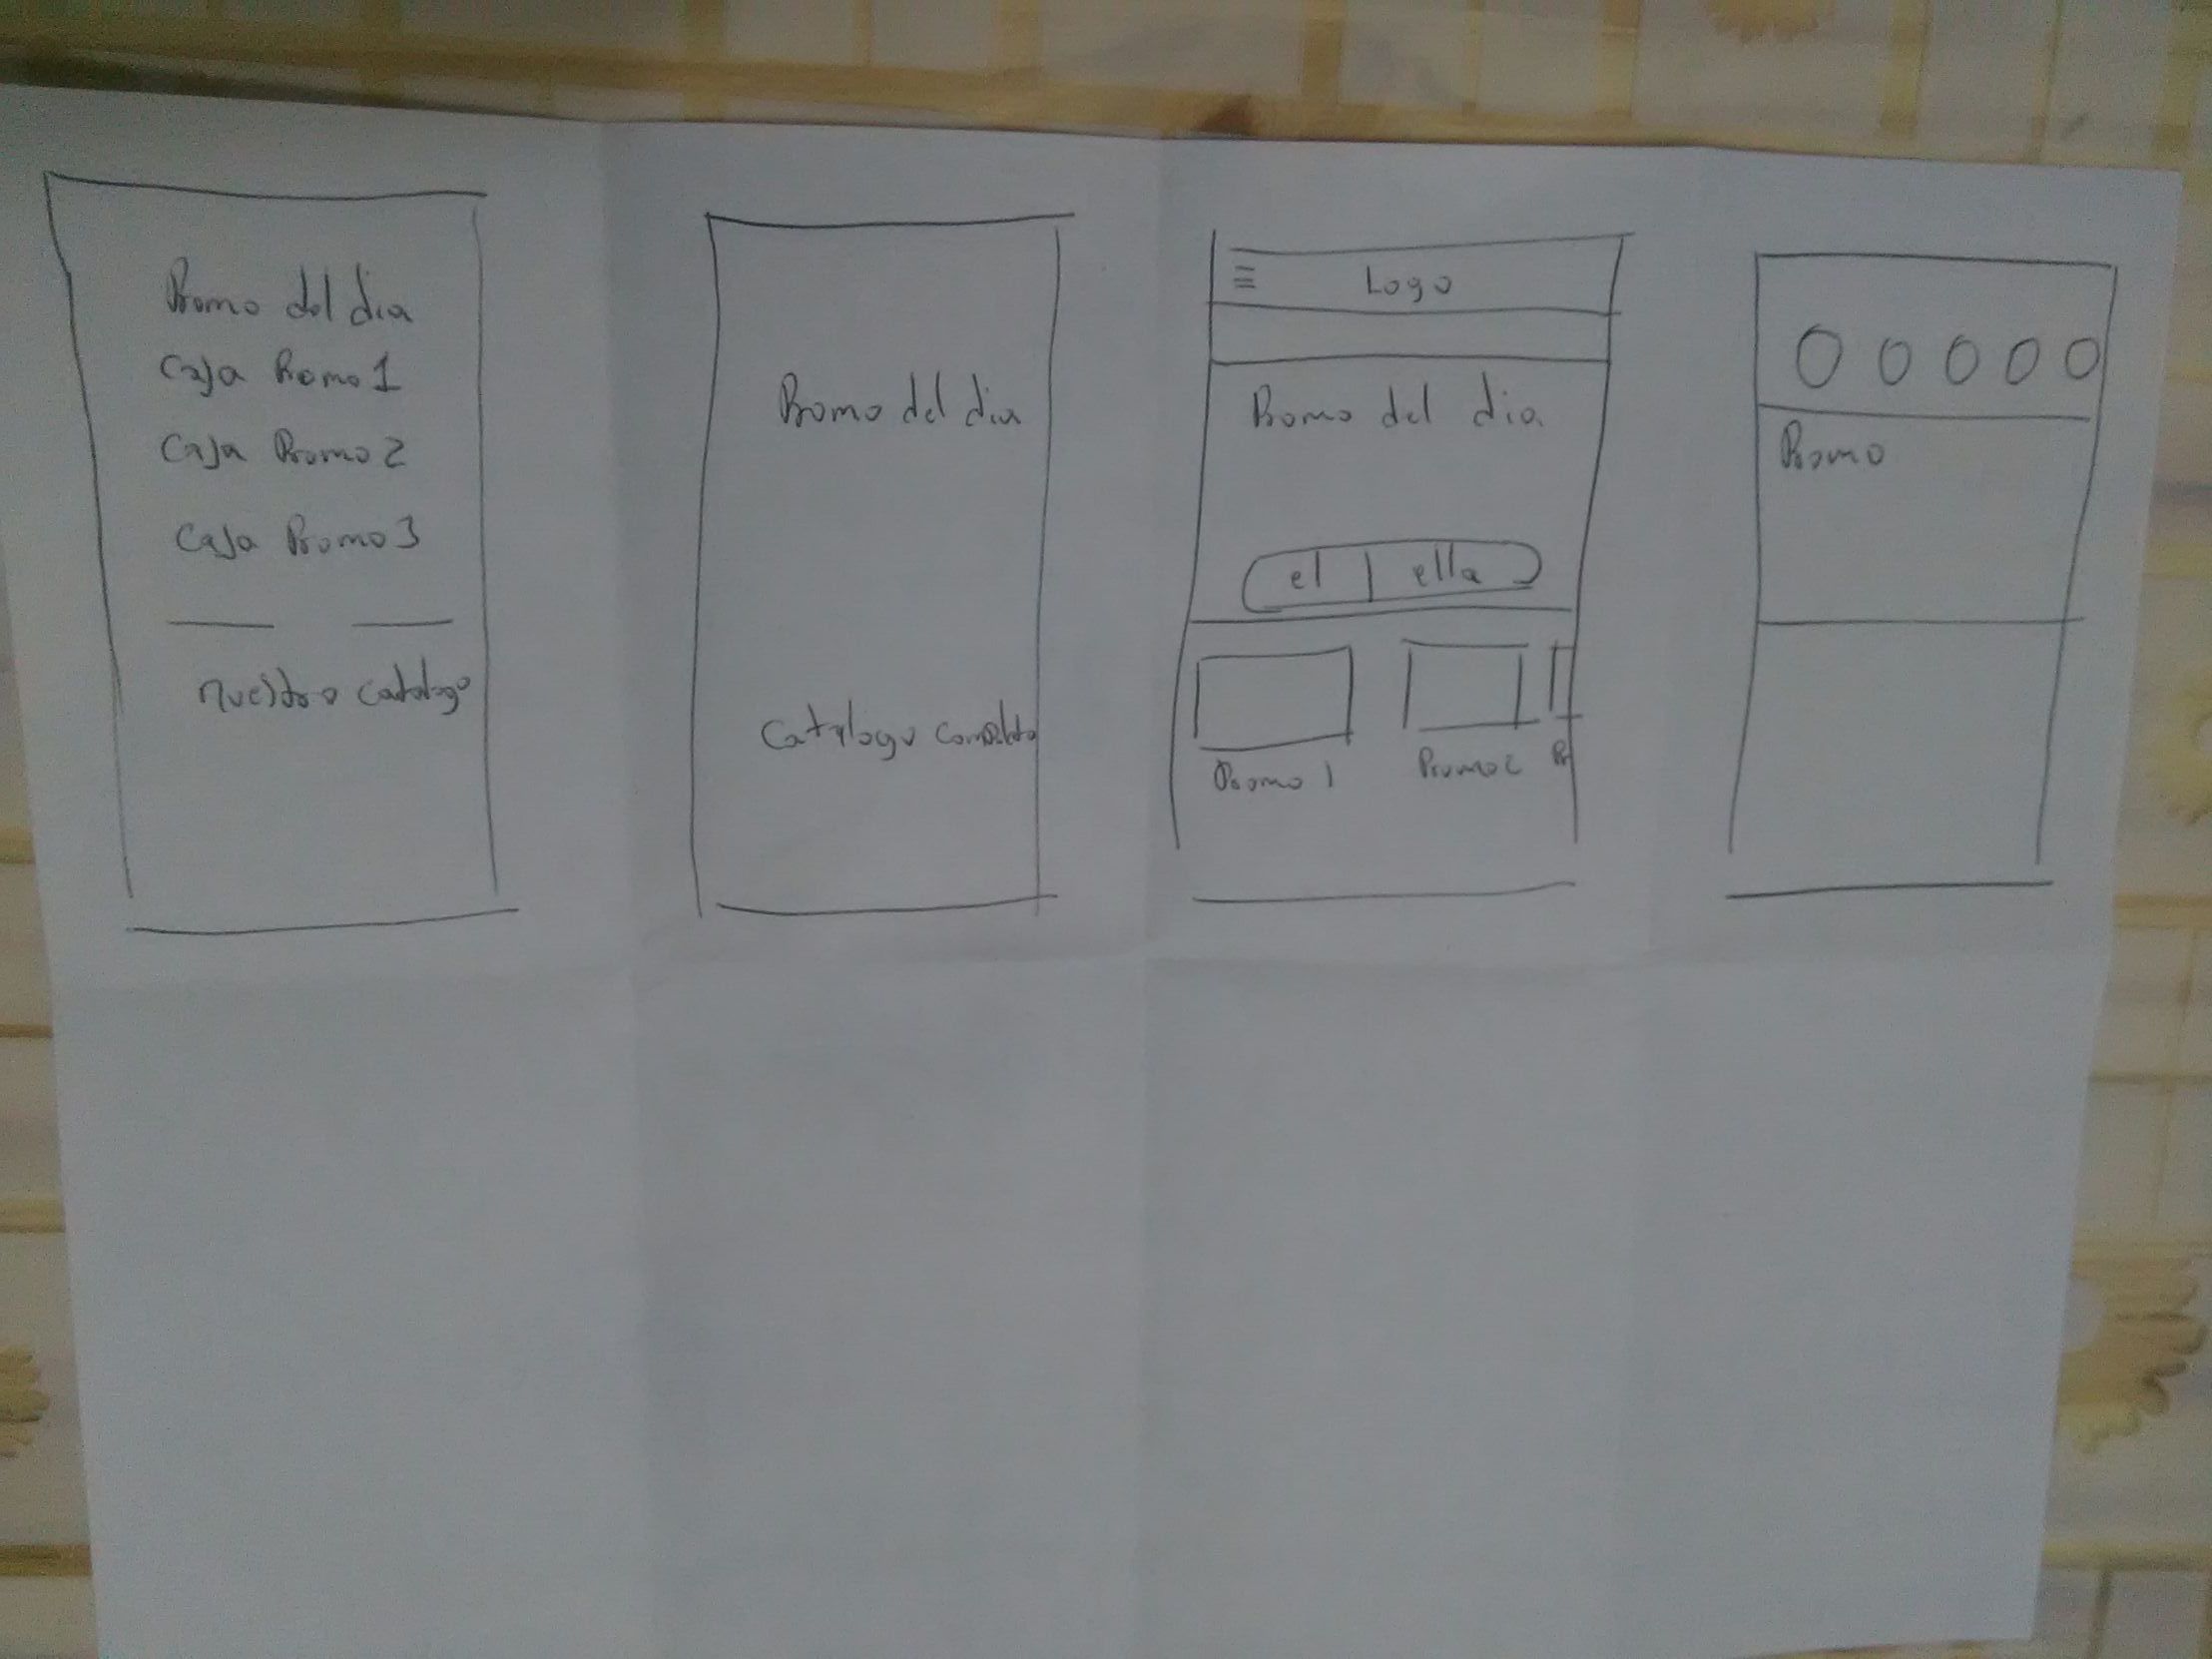 Promo del dia
Caja Promo 1
Caja Promo 2
Caja Promo 3
nuestro catalogo
Promo del dia
Catalogo completo
Logo
Promo del dia
el | ella
Promo 1
Promo 2
Pr
Promo